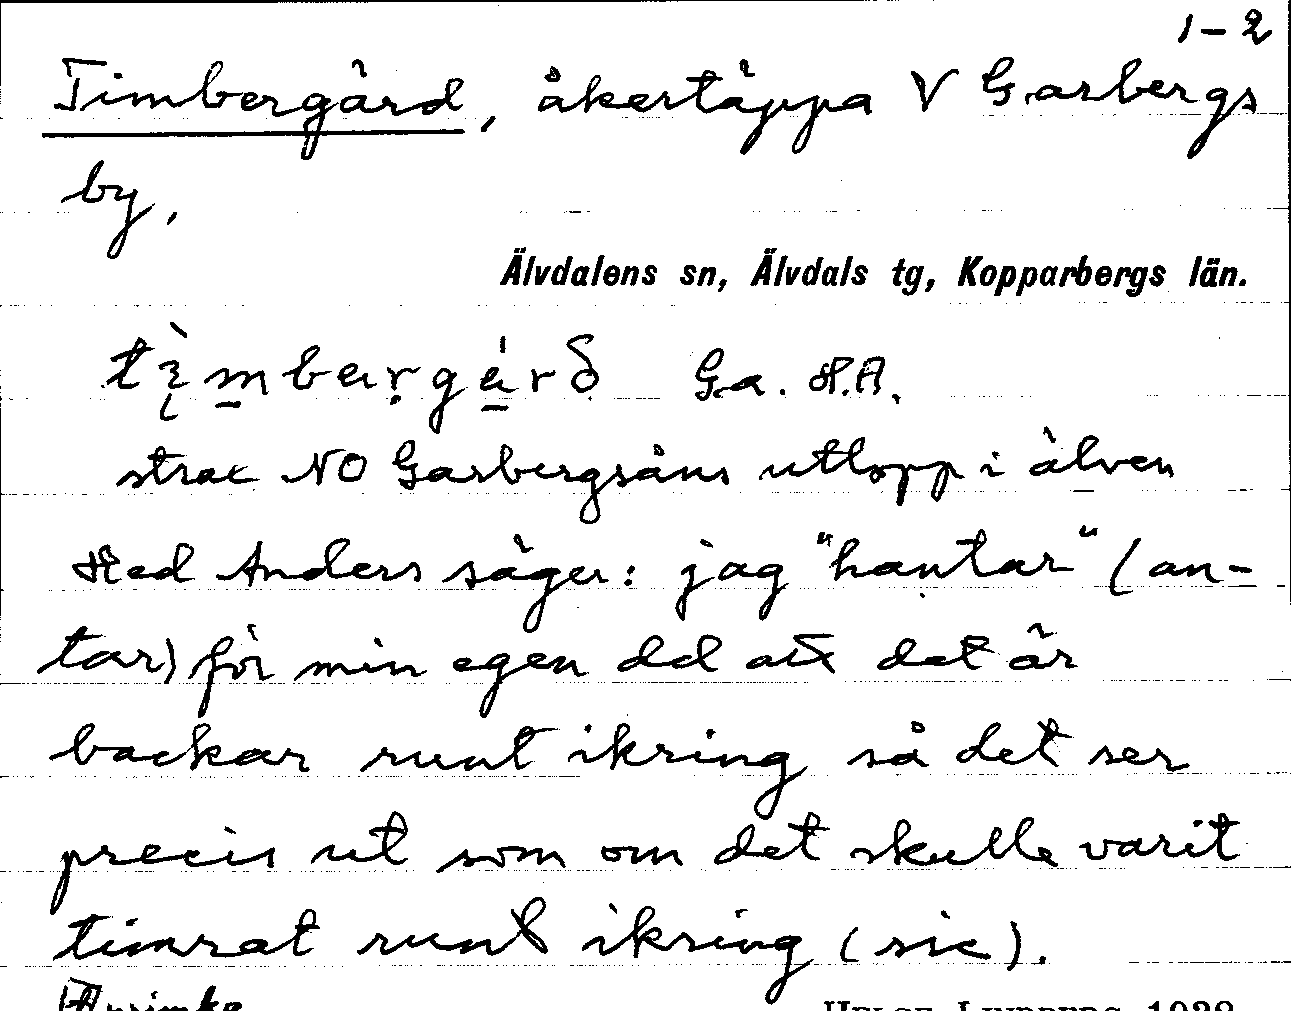 1-2
Timbergård, åkertäppa V Garbergs
by,
Älvdalens sn, Älvdals tg, Kopparbergs län.
Ga. H.A.
strax NO Garbergsåns utlopp i älven
Hed Anders säger: jag "hantar" (an-
tar) för min egen del att det är
backar runt ikring så det ser
precis ut som om det skulle varit
timrat runt ikring (sic).